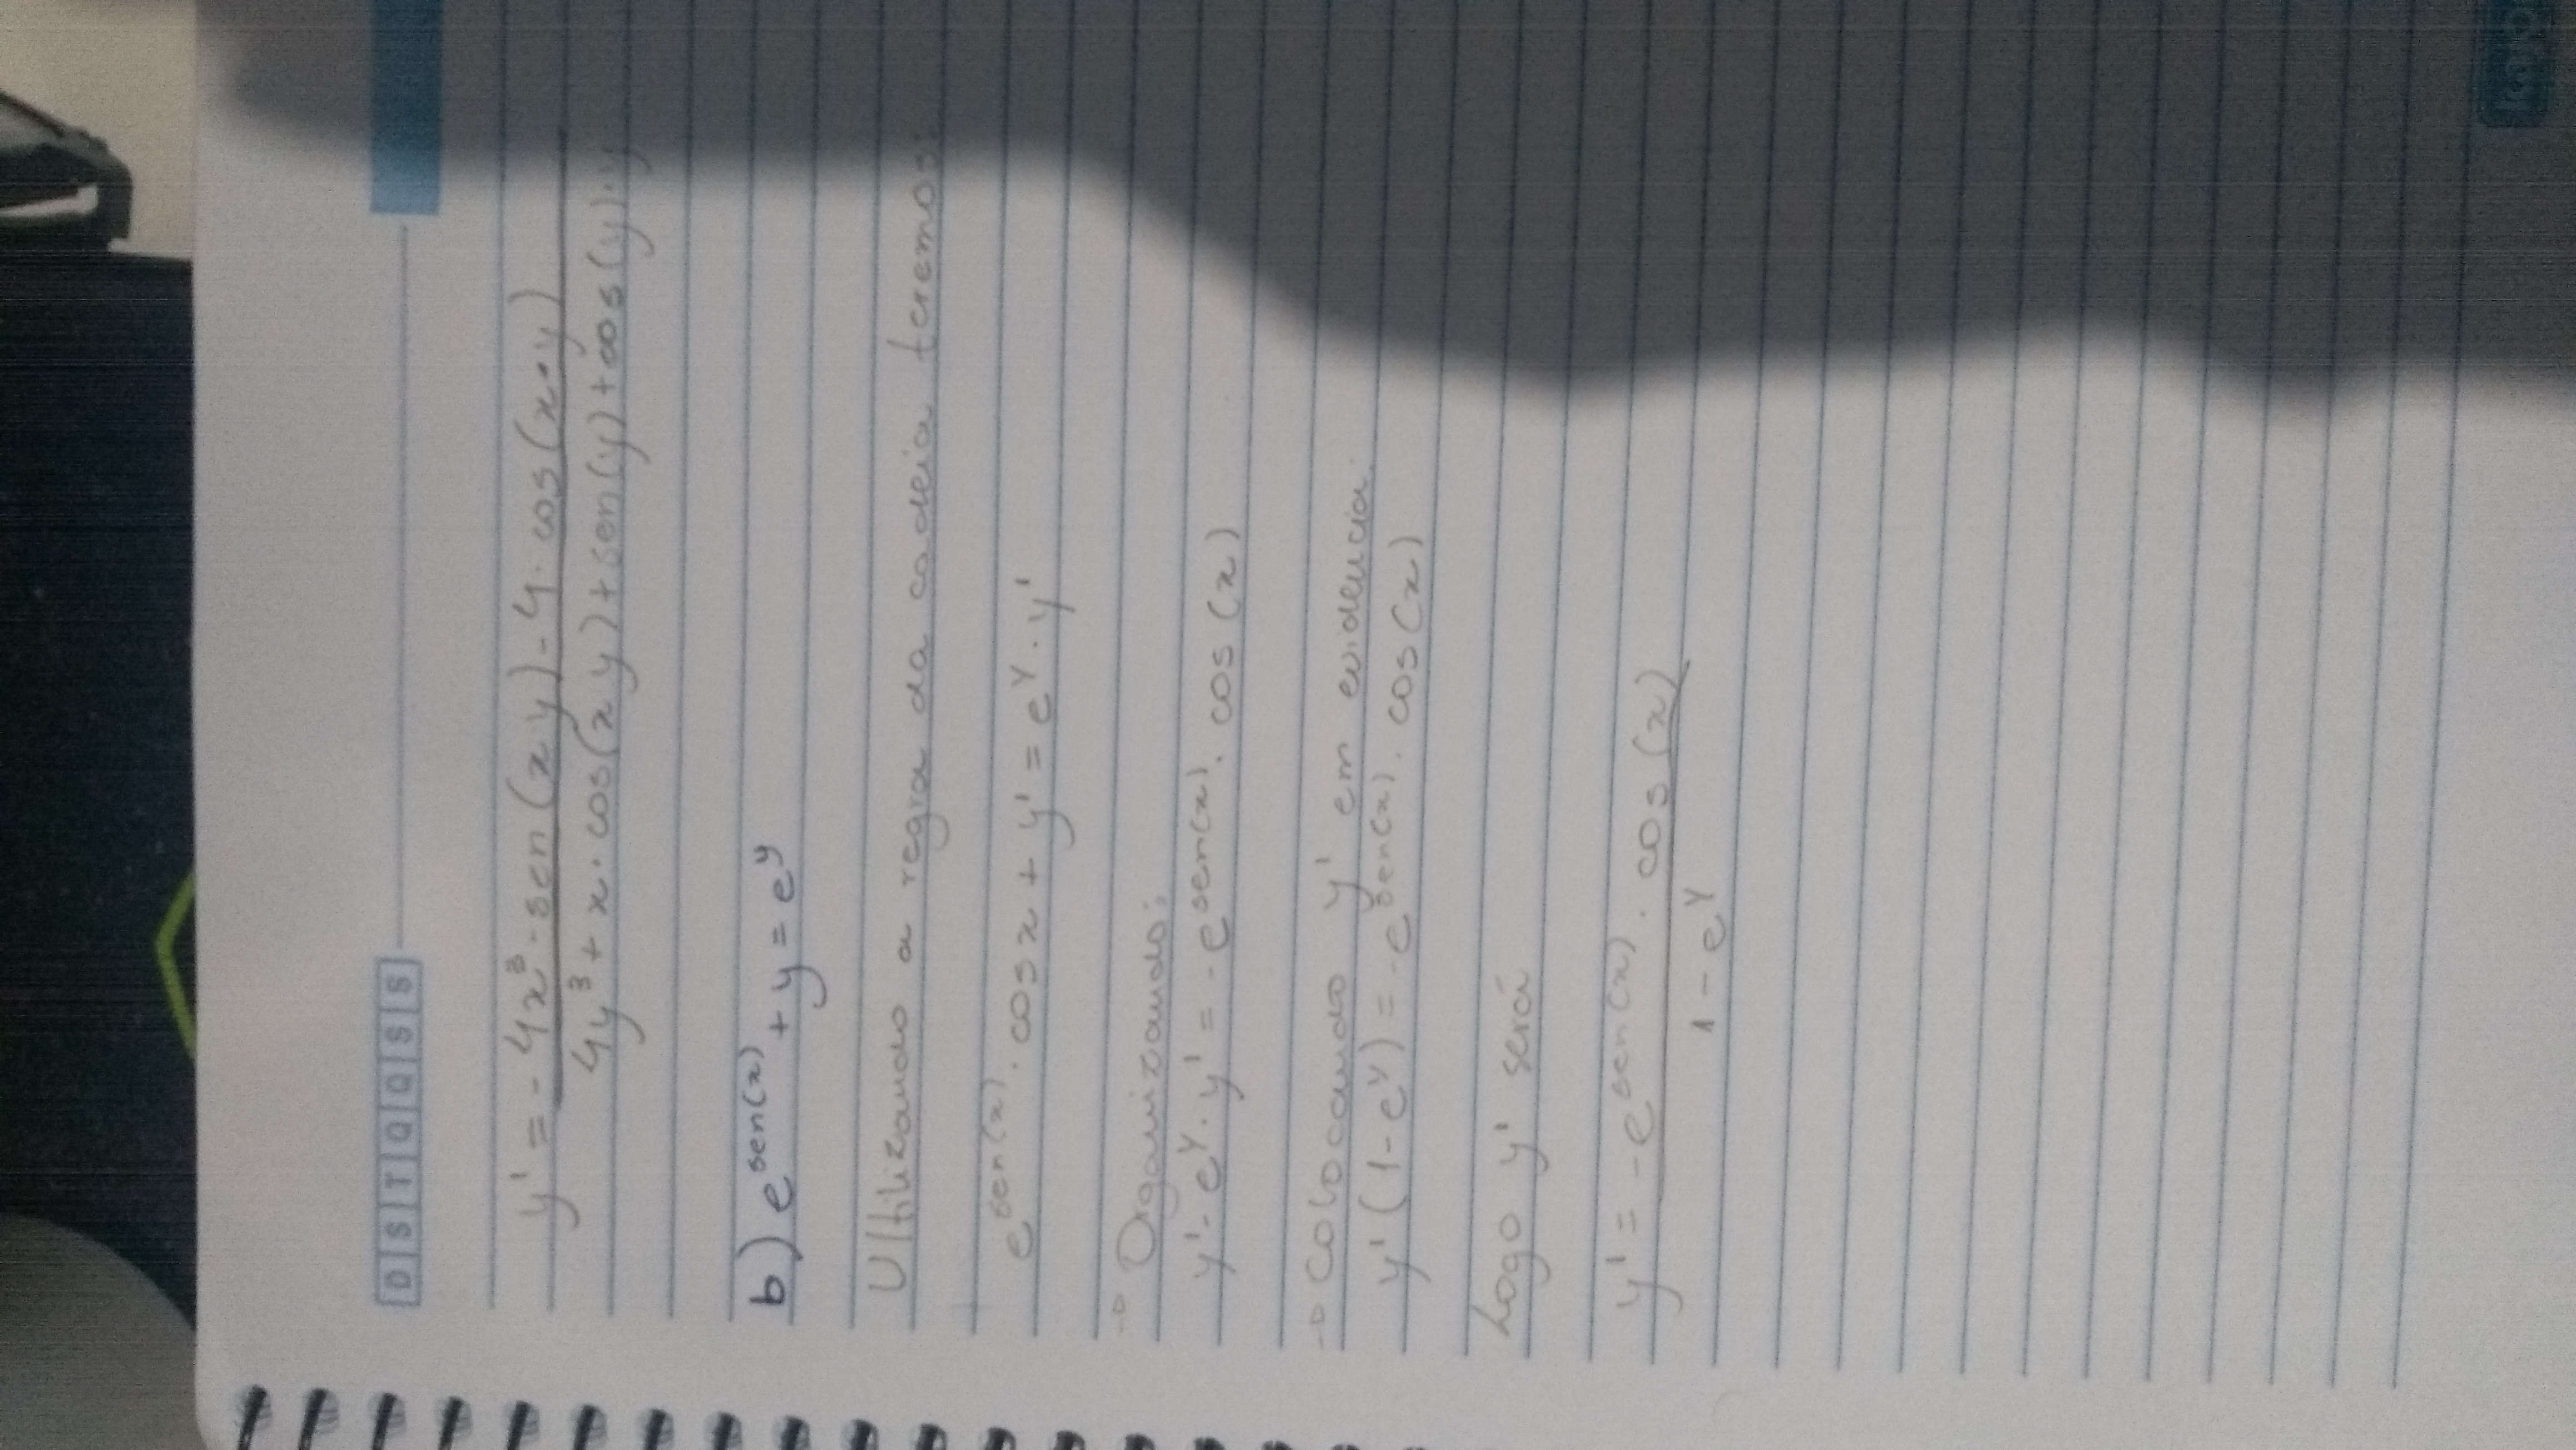 D S T Q Q S S
y' = - 4x³ · sen(xy) - y · cos(x·y)
4y³ + x · cos(xy) + sen(y) + cos(y) · y
b) e^sen(x) + y = e^y
Ultilizando a regra da cadeia teremos:
e^sen(x) · cos x + y' = e^y · y'
→ Organizando:
y' - e^y · y' = - e^sen(x) · cos(x)
→ Colocando y' em evidencia:
y' (1 - e^y) = - e^sen(x) · cos(x)
Logo y' será
y' = - e^sen(x) · cos(x)
1 - e^y